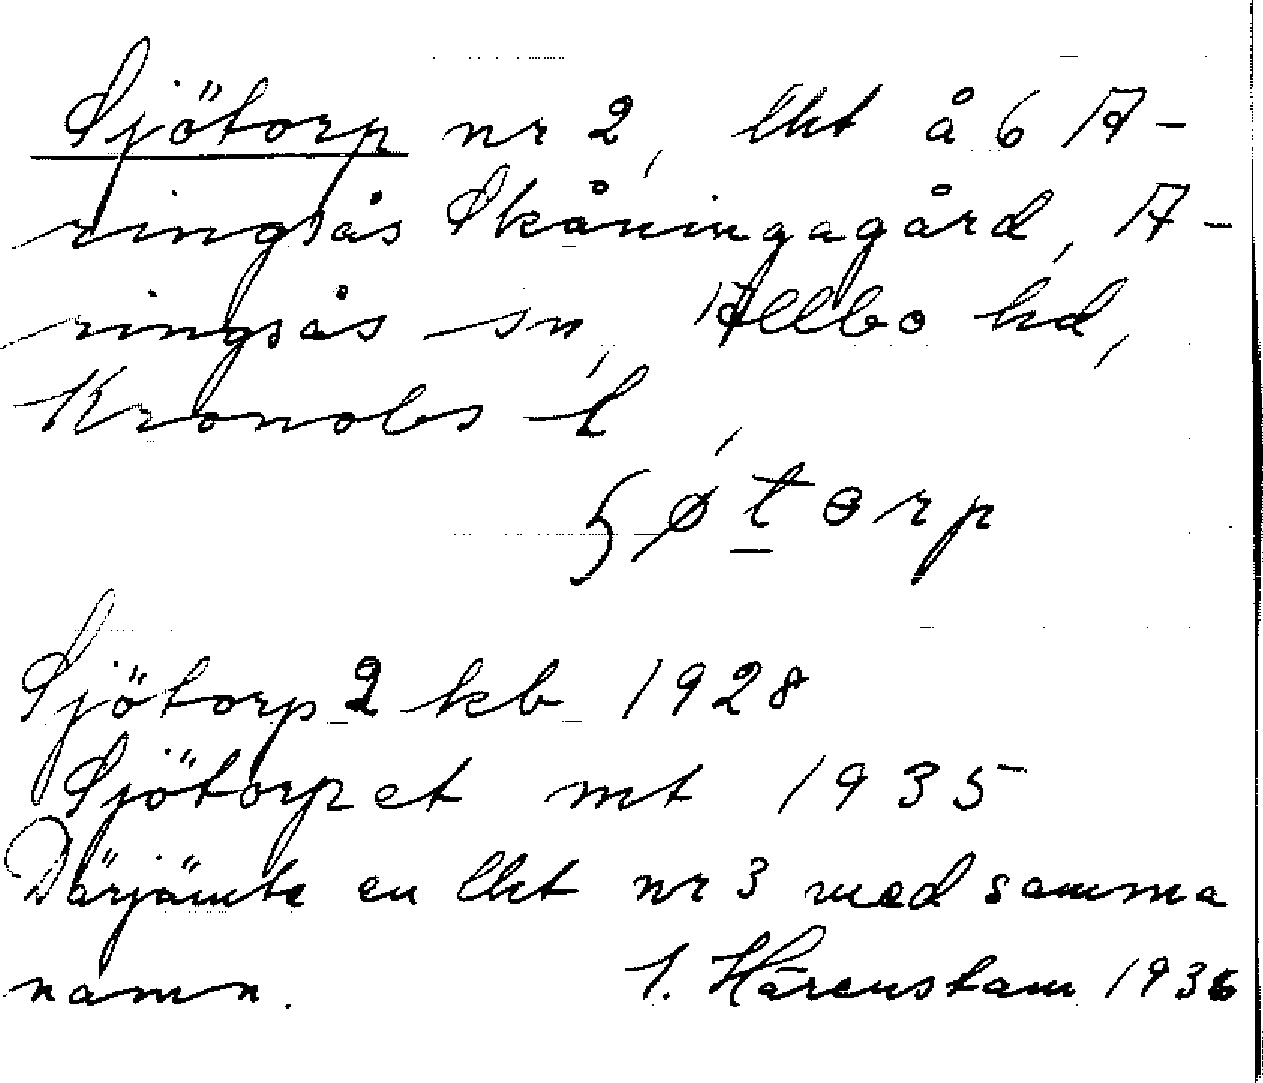 Sjötorp nr 2, lht å 6 A-
ringsås Skåningagård, A-
ringsås sn, Allbo hd,
Kronobs l
ɧøtorp
Sjötorp 2 kb 1928
Sjötorpet mt 1935
Därjämte en lht nr 3 med samma
namn. I. Härenstam 1936